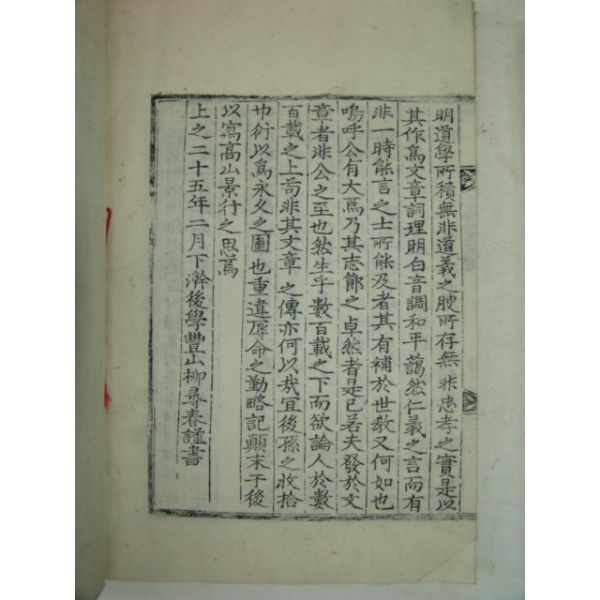 明道學所積無非道義之腴所存無非忠孝之實是以
其作爲文章詞理明白音調和平藹然仁義之言而有
非一時能言之士所能及者其有補於世敎又何如也
嗚呼公有大焉乃其志節之卓然者是已若夫發於文
章者非公之至也然生乎數百載之下而欲論人於數
百載之上苟非其文章之傳亦何以哉宜後孫之收拾
印行以爲永久之圖也重違勤命之勤略記顚末于後
以寓高山景行之思焉
上之二十五年二月下澣後學豐山柳尋春謹書